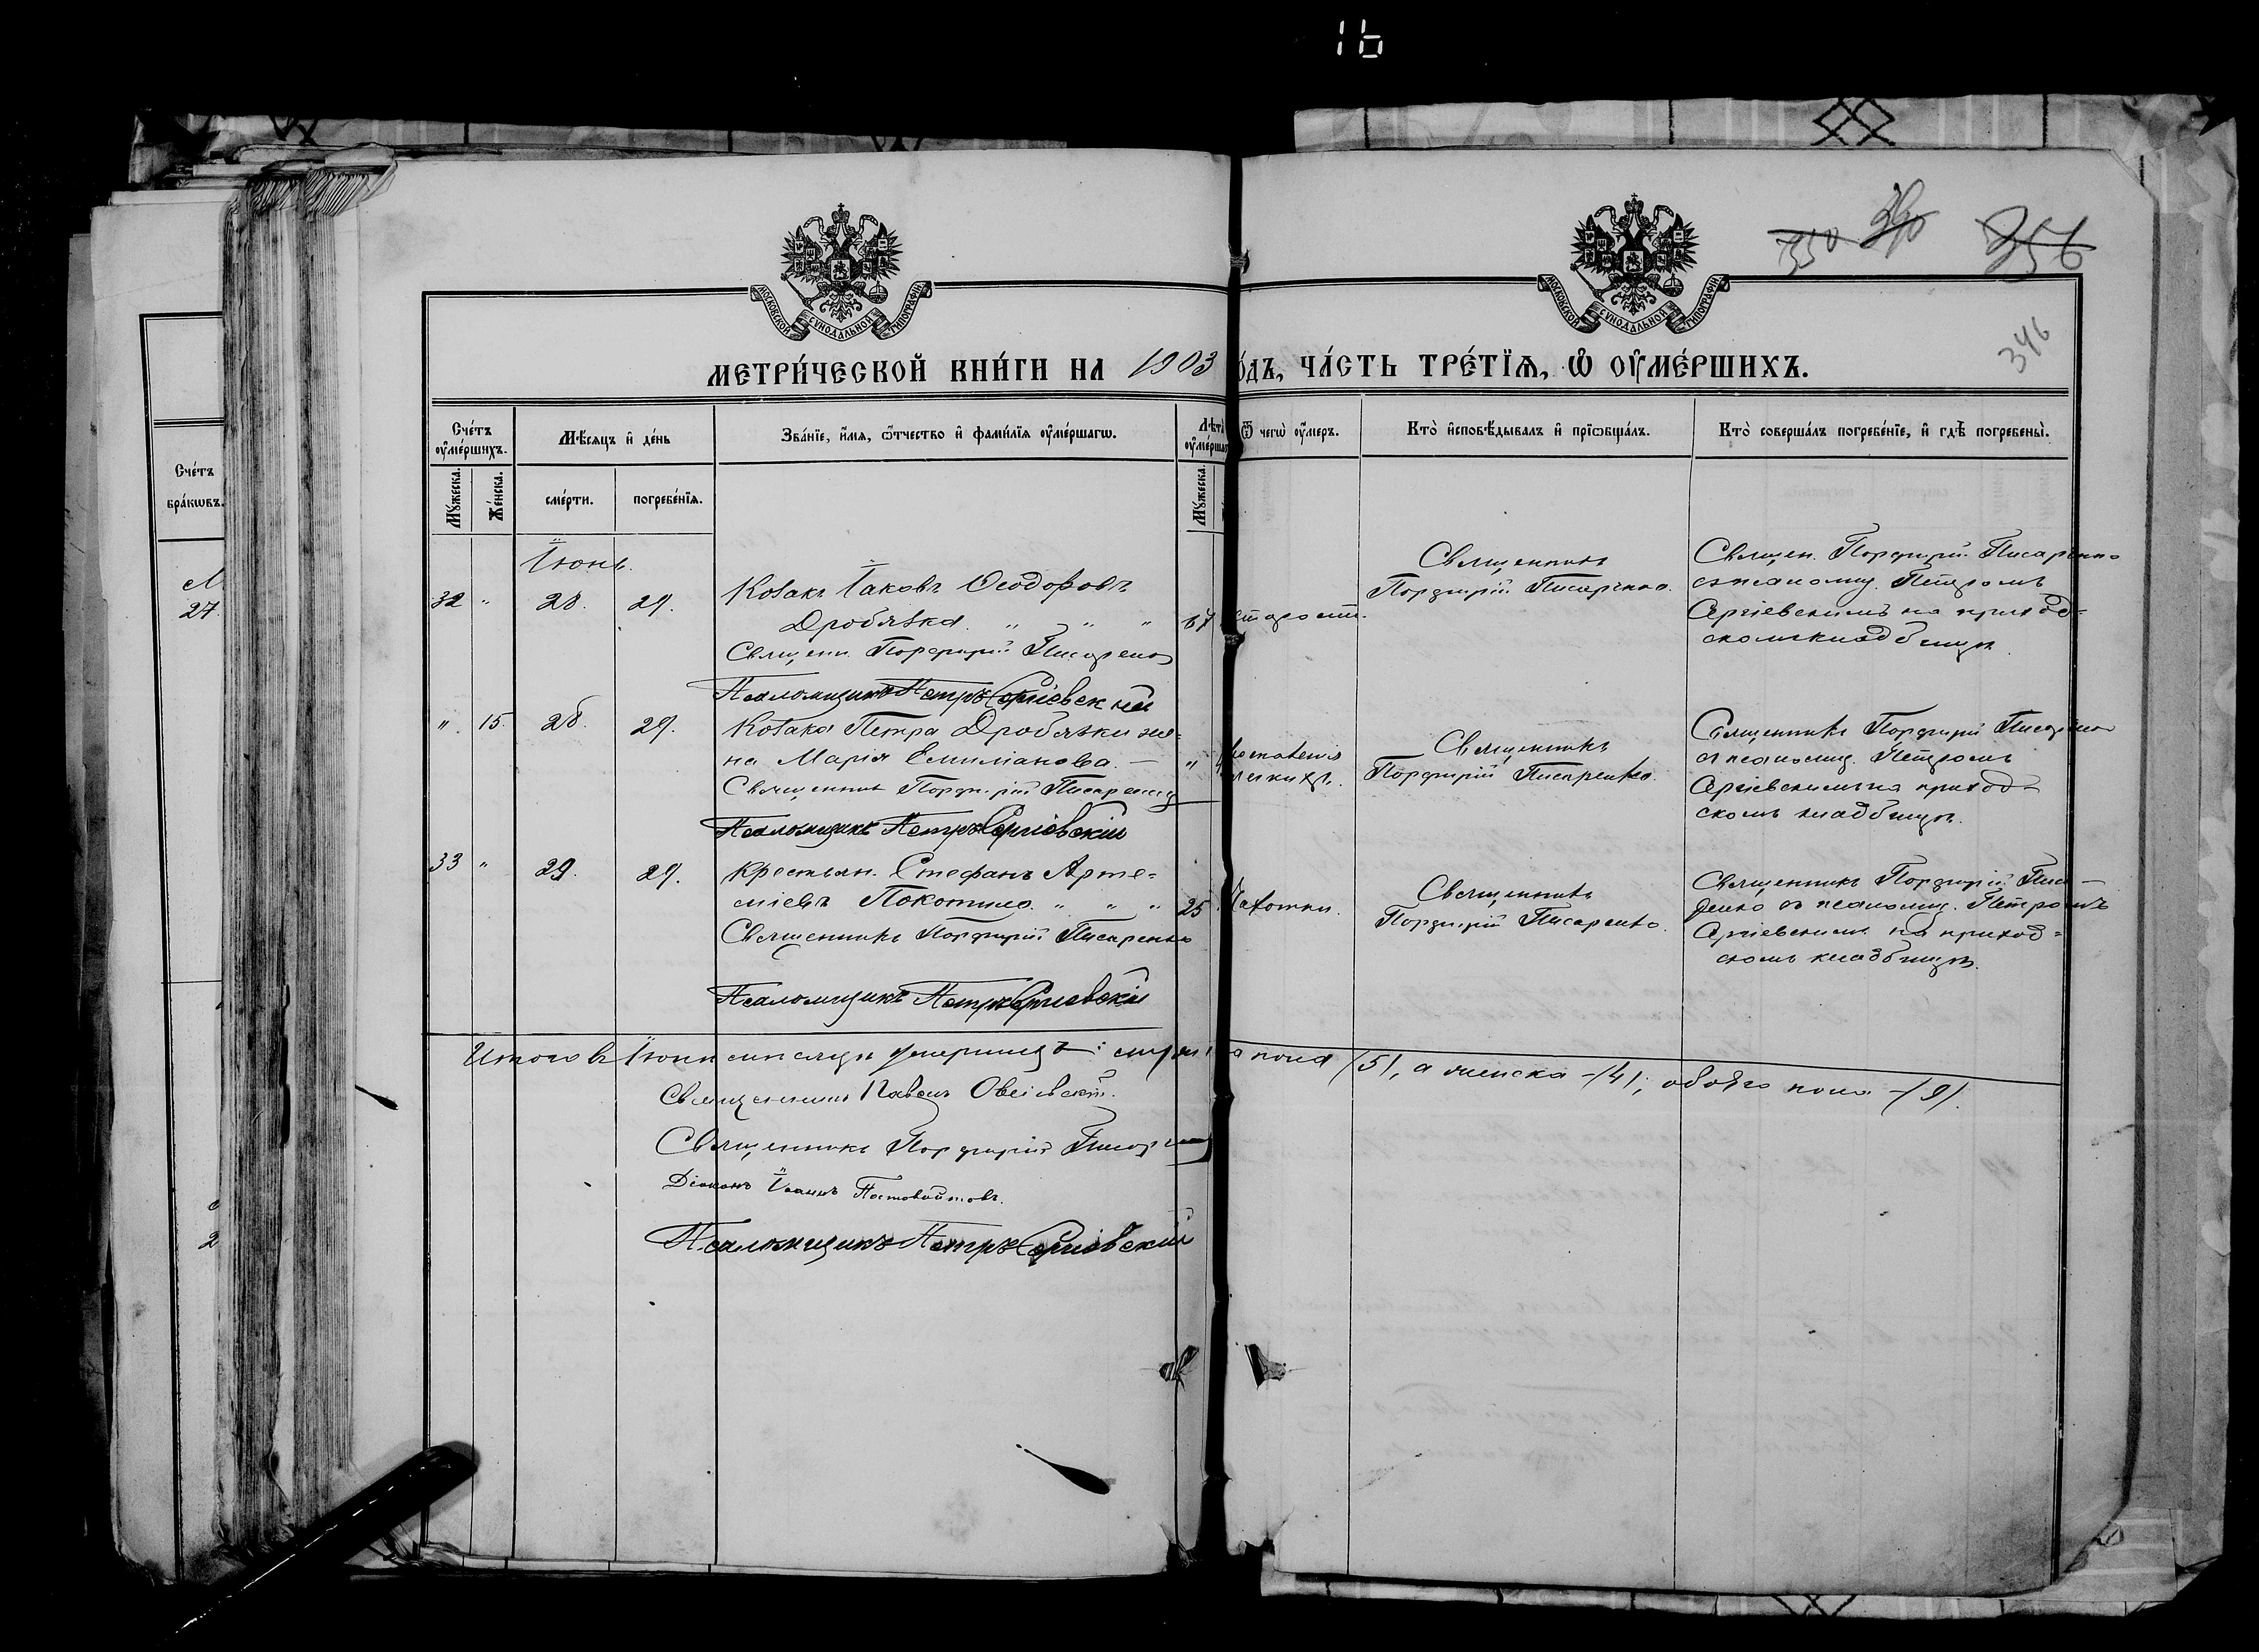 16
350 390 356
346
МОСКОВСКОЙ СѴНОДАЛЬНОЙ ТИПОГРАФІИ
МОСКОВСКОЙ СѴНОДАЛЬНОЙ ТИПОГРАФІИ
МЕТРИ́ЧЕСКОЙ КНИ́ГИ НА 1903 О́ДЪ, ЧА́СТЬ ТРЕ́ТЇѦ, Ѡ҆ ОУ҆МЕ́РШИХЪ.
Сче́тъ бра́кѡвъ.
27
Сче́тъ оу҆ме́ршихъ.
Мꙋ́жеска.
Же́нска.
Мѣ́сѧцъ и҆ де́нь
сме́рти.
погребе́нїѧ.
Зва́нїе, и҆́мѧ, ѻ҆́тчество и҆ фами́лїѧ оу҆ме́ршагѡ.
Лѣ́т
оу҆ме́рша
Мꙋ́жеска.
Ѿ чегѡ̀ оу҆́меръ.
Кто̀ и҆сповѣ́дывалъ и҆ прїѡбща́лъ.
Кто̀ соверша́лъ погребе́нїе, и҆ гдѣ̀ погребены̀.
Іюнь.
32 " 28. 29.
Козакъ Іаковъ Ѳеодоровъ
Дробязка. " " "
67
старости.
Священ. Порфирій Писаренко
Псаломщикъ Петръ Сергіевскій
Священникъ
Порфирій Писаренко.
Священ. Порфирій Писаренко
съ псаломщ. Петромъ
Сергіевскимъ на приход=
скомъ кладбищѣ.
" 15. 28. 29.
Козака Петра Дробязки же=
на Марія Емиліанова. —
"
легкихъ.
Священникъ Порфирій Писаренко
Псаломщикъ Петръ Сергіевскій
Священникъ
Порфирій Писаренко.
Священникъ Порфирій Писаренко
съ псаломщ. Петромъ
Сергіевскимъ на приход=
скомъ кладбищѣ.
33 " 29. 29.
Крестьян. Стефанъ Арте=
міевъ Покотило. " " "
25
Чахотки.
Священникъ Порфирій Писаренко
Псаломщикъ Петръ Сергіевскій
Священникъ
Порфирій Писаренко.
Священникъ Порфирій Писа—
ренко съ псаломщ. Петромъ
Сергіевскимъ на приход=
скомъ кладбищѣ.
Итого въ Іюнѣ мѣсяцѣ умершихъ: мужска пола /5/, а женска -/4/; обоего пола -/9/.
Священникъ Павелъ
Священникъ Порфирій Писаренко
Діаконъ Іоаннъ
Псаломщикъ Петръ Сергіевскій